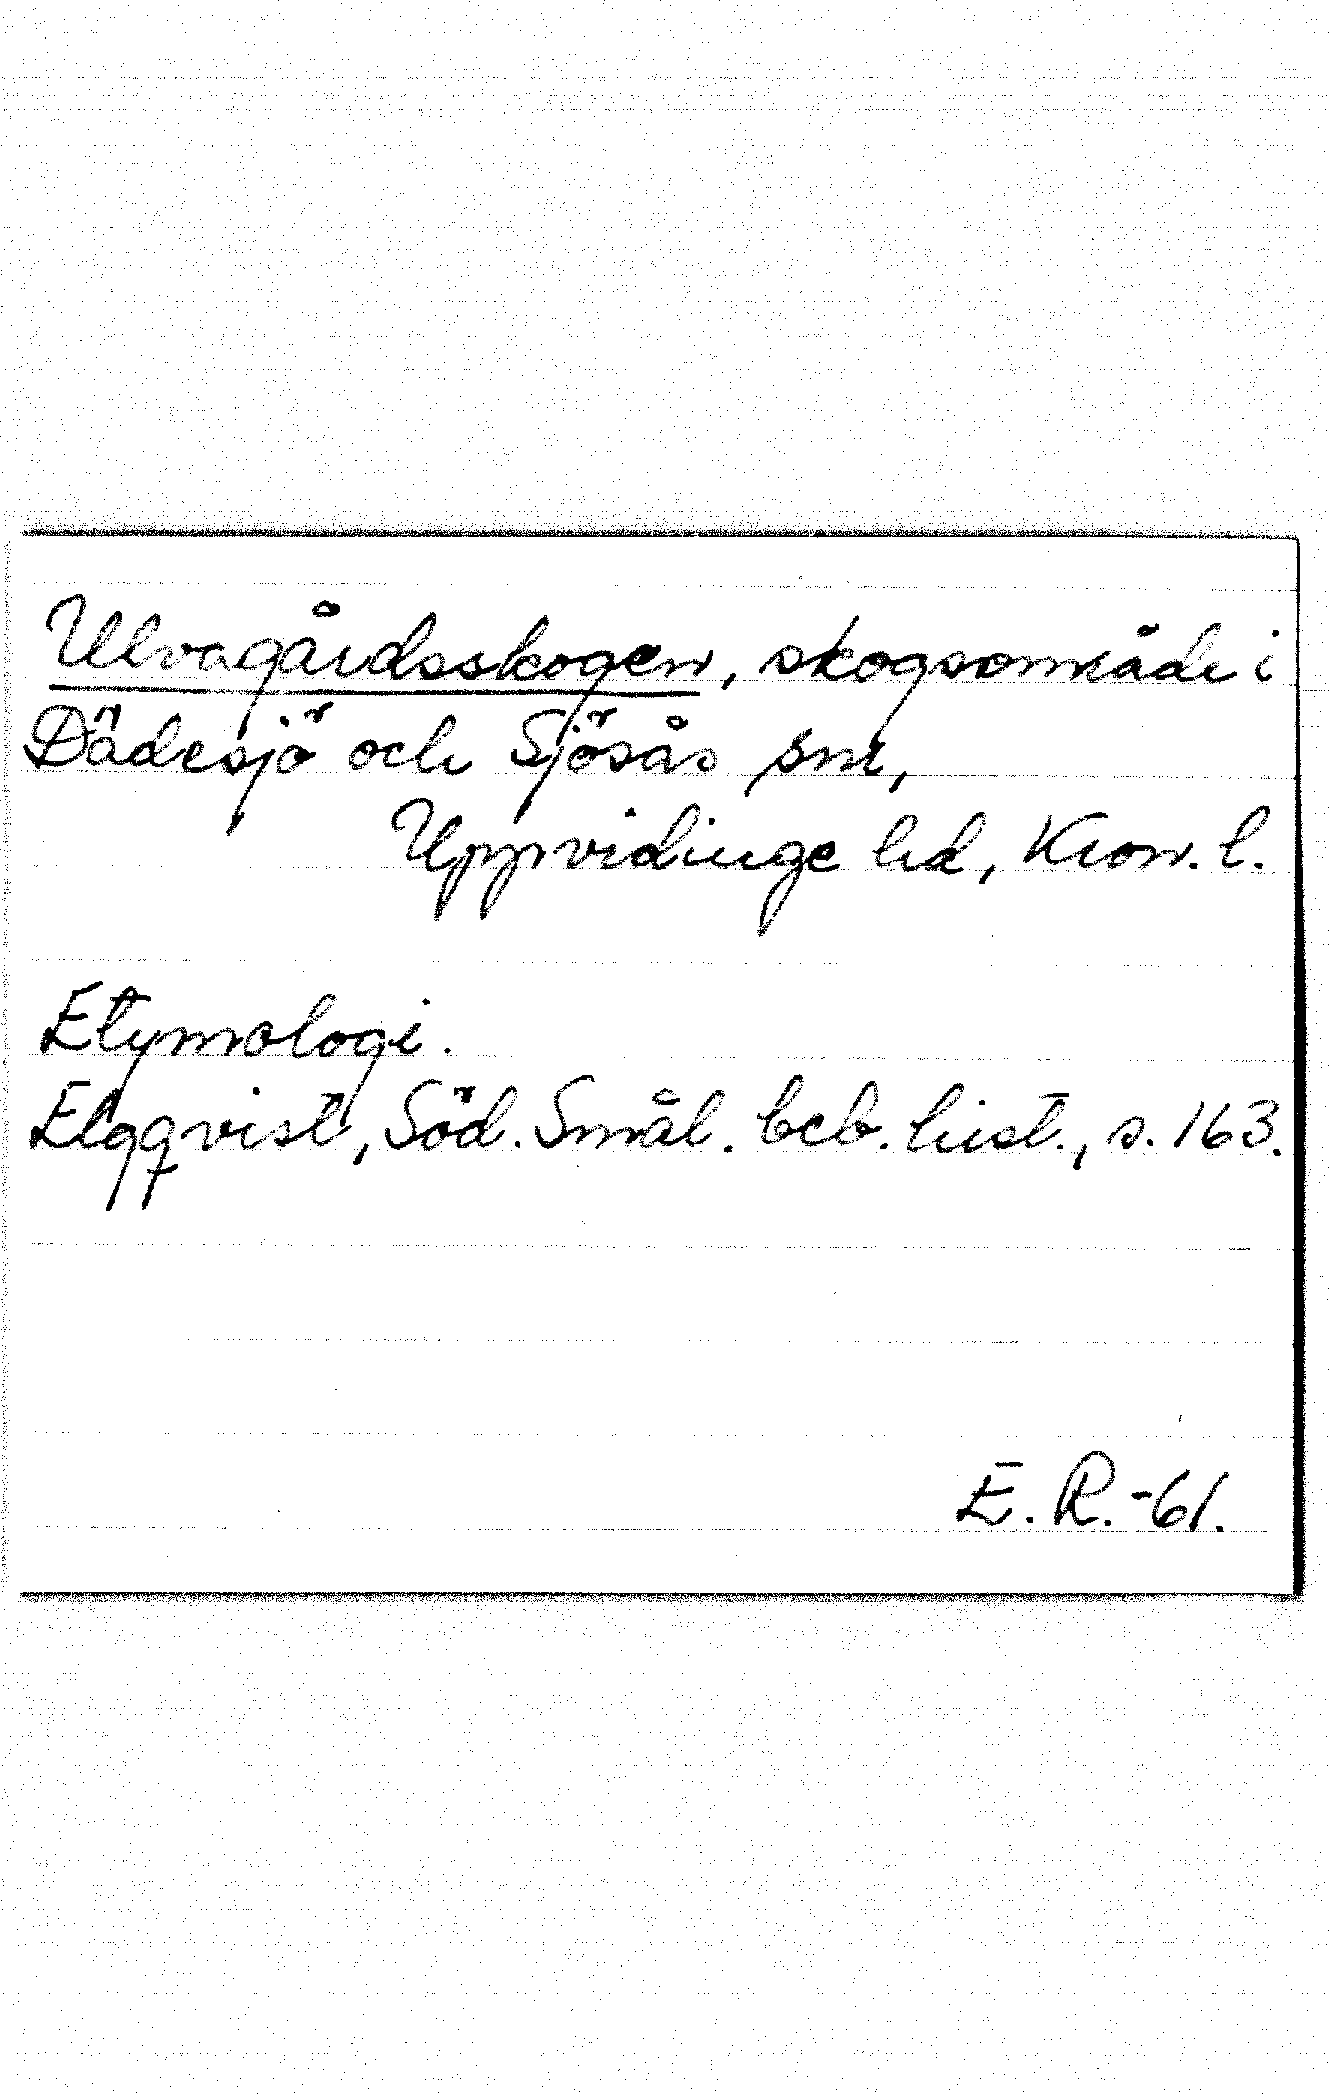 Ulvagårdsskogen, skogsområde i
Dädesjö och Sjösås snr,
Uppvidinge hd, Kron. l.
Etymologi.
Elgqvist, Söd. Smål. beb. hist., s. 163.
E. R. -61.